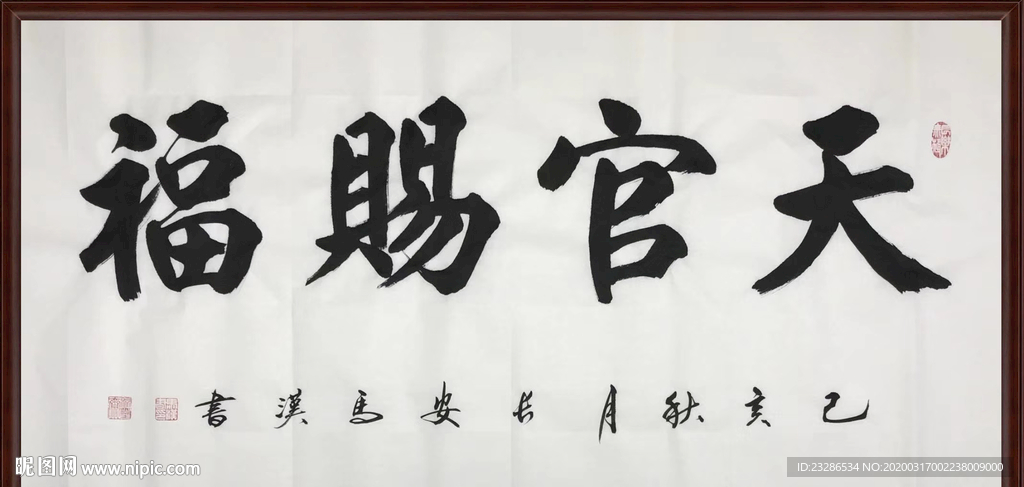 天官賜福
己亥秋月长安馬漢書
昵图网 www.nipic.com
ID:23286534 NO:20200317002238009000